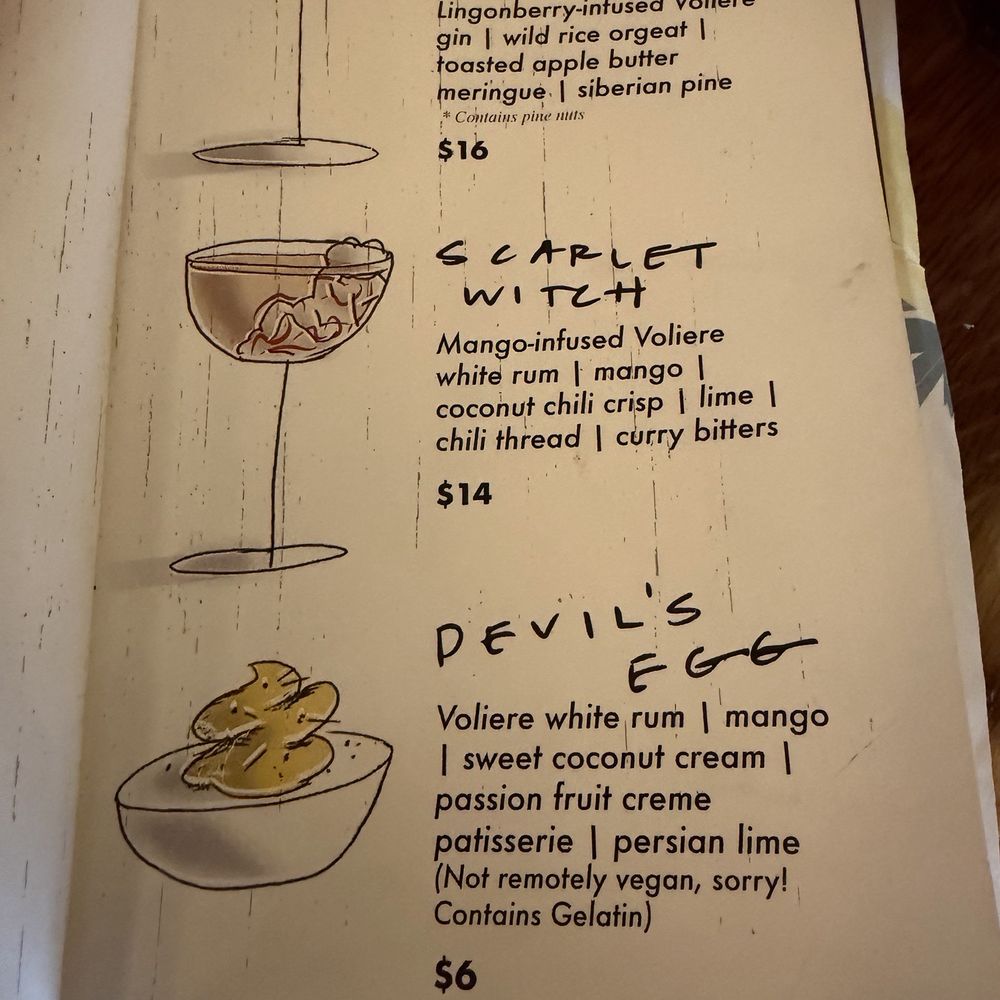 Lingonberry-infused Voliere
gin | wild rice orgeat |
toasted apple butter
meringue | siberian pine
* Contains pine nuts
$16
SCARLET
WITCH
Mango-infused Voliere
white rum | mango |
coconut chili crisp | lime |
chili thread | curry bitters
$14
DEVIL'S
EGG
Voliere white rum | mango
| sweet coconut cream |
passion fruit creme
patisserie | persian lime
(Not remotely vegan, sorry!
Contains Gelatin)
$6